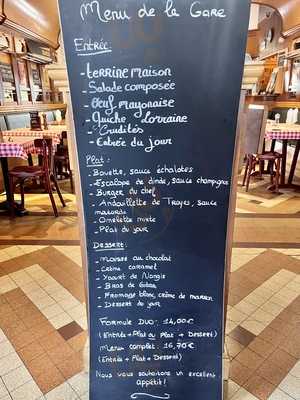 Menu de la Gare
Entrée
- terrine maison
- Salade composée
- Œuf mayonaise
- Quiche Lorraine
- Crudités
- Entrée du jour
Plat :
- Bavette, sauce échalotes
- Escalope de dinde, sauce champignons
- Burger du chef
- Andouillette de Troyes, sauce
moutarde
- Omelette mixte
- Plat du jour
Dessert :
- Mousse au chocolat
- Crème caramel
- Yaourt de Nangis
- Fromage blanc, crème de marron
- Dessert du jour
Formule DUO : 14,00€
(Entrée + Plat ou Plat + Dessert)
Menu complet : 16,70€
(Entrée + Plat + Dessert)
Nous vous souhaitons un excellent
appétit !